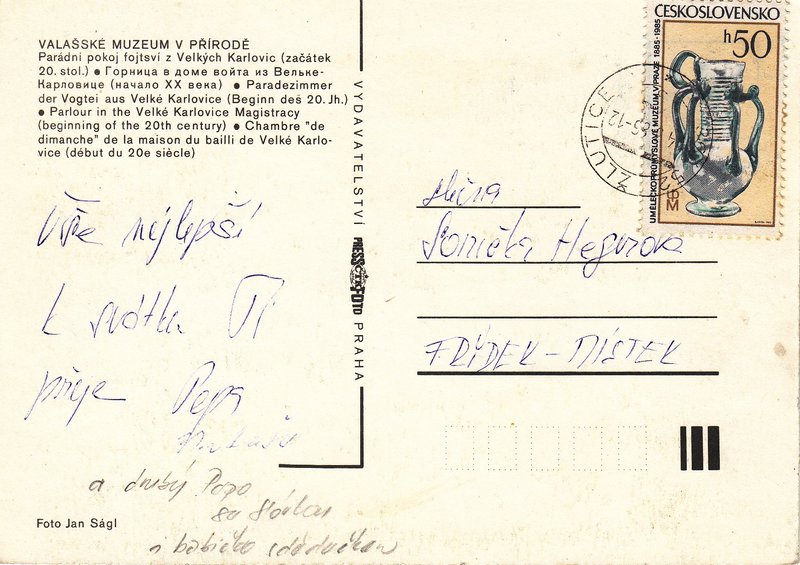 VALAŠSKÉ MUZEUM V PŘÍRODĚ
Parádní pokoj fojtsví z Velkých Karlovic (začátek
20. stol.) ● Горница в доме войта из Вельке-
Карловице (начало XX века) ● Paradezimmer
der Vogtei aus Velké Karlovice (Beginn des 20. Jh.)
● Parlour in the Velké Karlovice Magistracy
(beginning of the 20th century) ● Chambre "de
dimanche" de la maison du bailli de Velké Karlo-
vice (début du 20e siècle)
Vše nejlepší
k svátku Ti
přeje Pepa
a druhý Pepa
i babička
Foto Jan Ságl
VYDAVATELSTVÍ PRESSFOTO PRAHA
ČESKOSLOVENSKO
h50
UMĚLECKOPRŮMYSLOVÉ MUZEUM V PRAZE 1885-1985
UPM
ŽLUTICE
slečna
Sonička Hegerova
FRÝDEK-MÍSTEK